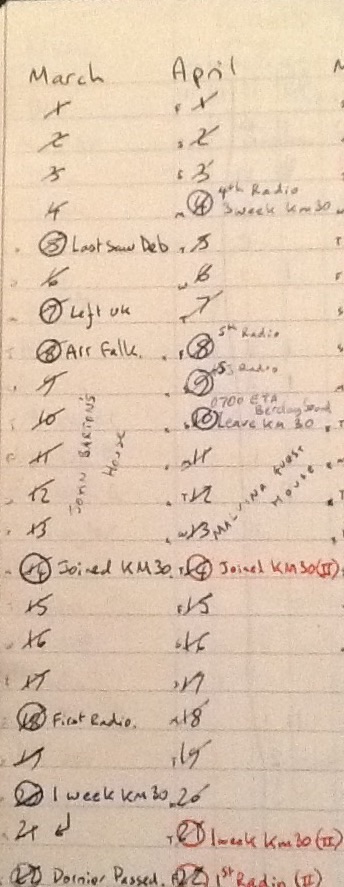 March
1
2
3
4
5 Last saw Deb
6
7 Left UK
8 Arr Falk.
9
10
11
12
13
JOHN BARTON'S
HOUSE
14 Joined KM30.
15
16
17
18 First Radio.
19
20 1 week KM30
21
22 Dornier Passed.
April
F 1
S 2
S 3
M 4 4th Radio
3 week KM30
T 5
W 6
T 7
F 8 5th Radio
S 9 Radio
S 10 0700 ETA
Berkeley Sound
Leave KM 30
M 11
T 12
W 13
MALVINA GUEST
HOUSE
T 14 Joined KM30(II)
F 15
S 16
S 17
M 18
T 19
W 20
T 21 1 week KM30(II)
F 22 1st Radio (II)
M